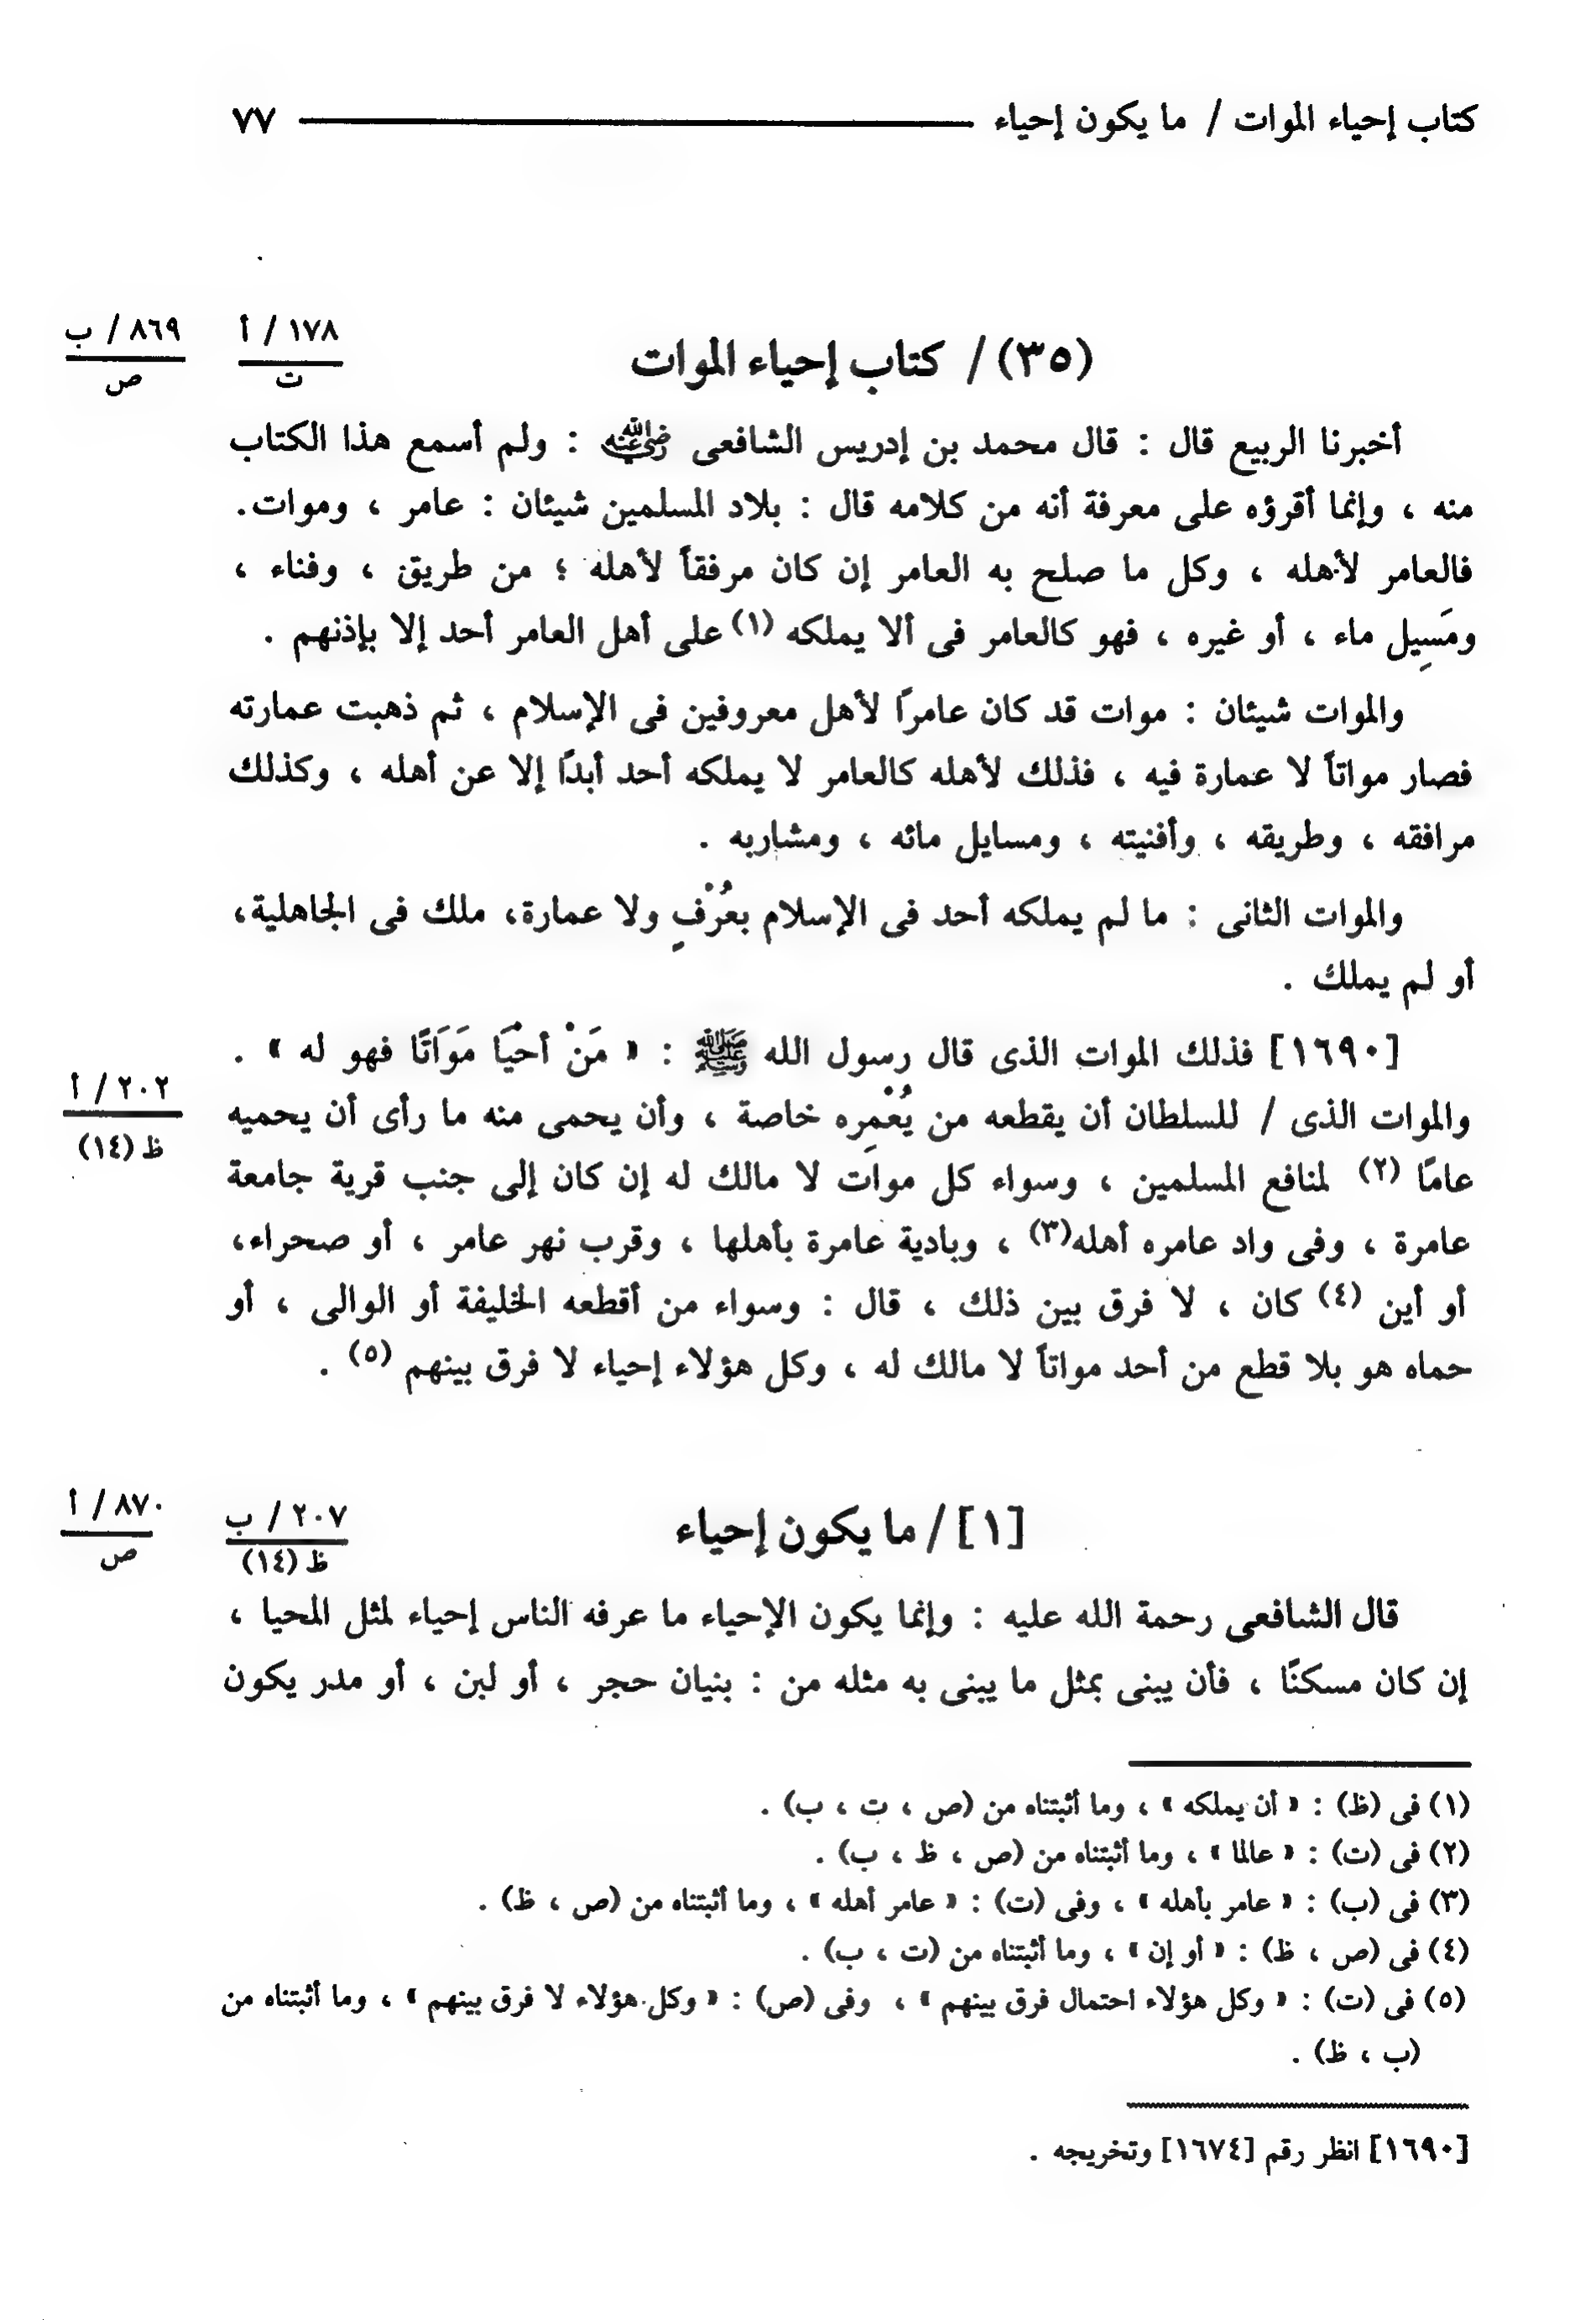 كتاب إحياء الموات / ما يكون إحياء ٧٧
٨٦٩ / ب
ص
١٧٨ / أ
ت
(٣٥) / كتاب إحياء الموات
أخبرنا الربيع قال : قال محمد بن إدريس الشافعى رضي الله عنه : ولم أسمع هذا الكتاب
منه ، وإنما أقرؤه على معرفة أنه من كلامه قال : بلاد المسلمين شيئان : عامر ، وموات.
فالعامر لأهله ، وكل ما صلح به العامر إن كان مرفقاً لأهله ؛ من طريق ، وفناء ،
ومَسِيل ماء ، أو غيره ، فهو كالعامر فى ألا يملكه (١) على أهل العامر أحد إلا بإذنهم .
والموات شيئان : موات قد كان عامرًا لأهل معروفين فى الإسلام ، ثم ذهبت عمارته
فصار مواتاً لا عمارة فيه ، فذلك لأهله كالعامر لا يملكه أحد أبدًا إلا عن أهله ، وكذلك
مرافقه ، وطريقه ، وأفنيته ، ومسايل مائه ، ومشاربه .
والموات الثانى : ما لم يملكه أحد فى الإسلام بعُرْفٍ ولا عمارة، ملك فى الجاهلية،
أو لم يملك .
[١٦٩٠] فذلك الموات الذى قال رسول الله ﷺ : « مَنْ أحْيَا مَوَاتًا فهو له » .
والموات الذى / للسلطان أن يقطعه من يُعْمِره خاصة ، وأن يحمى منه ما رأى أن يحميه
٢٠٢ / أ
ظ (١٤)
عامًا (٢) لمنافع المسلمين ، وسواء كل موات لا مالك له إن كان إلى جنب قرية جامعة
عامرة ، وفى واد عامره أهله(٣) ، وبادية عامرة بأهلها ، وقرب نهر عامر ، أو صحراء،
أو أين (٤) كان ، لا فرق بين ذلك ، قال : وسواء من أقطعه الخليفة أو الوالى ، أو
حماه هو بلا قطع من أحد مواتاً لا مالك له ، وكل هؤلاء إحياء لا فرق بينهم (٥) .
٨٧٠ / أ
ص
٢٠٧ / ب
ظ (١٤)
[١] / ما يكون إحياء
قال الشافعى رحمة الله عليه : وإنما يكون الإحياء ما عرفه الناس إحياء لمثل المحيا ،
إن كان مسكنًا ، فأن يبنى بمثل ما يبنى به مثله من : بنيان حجر ، أو لبن ، أو مدر يكون
(١) فى (ظ) : « أن يملكه » ، وما أثبتناه من (ص ، ت ، ب) .
(٢) فى (ت) : « عالما » ، وما أثبتناه من (ص ، ظ ، ب) .
(٣) فى (ب) : « عامر بأهله » ، وفى (ت) : « عامر أهله » ، وما أثبتناه من (ص ، ظ) .
(٤) فى (ص ، ظ) : « أو إن » ، وما أثبتناه من (ت ، ب) .
(٥) فى (ت) : « وكل هؤلاء احتمال فرق بينهم » ، وفى (ص) : « وكل هؤلاء لا فرق بينهم » ، وما أثبتناه من
(ب ، ظ) .
[١٦٩٠] انظر رقم [١٦٧٤] وتخريجه .